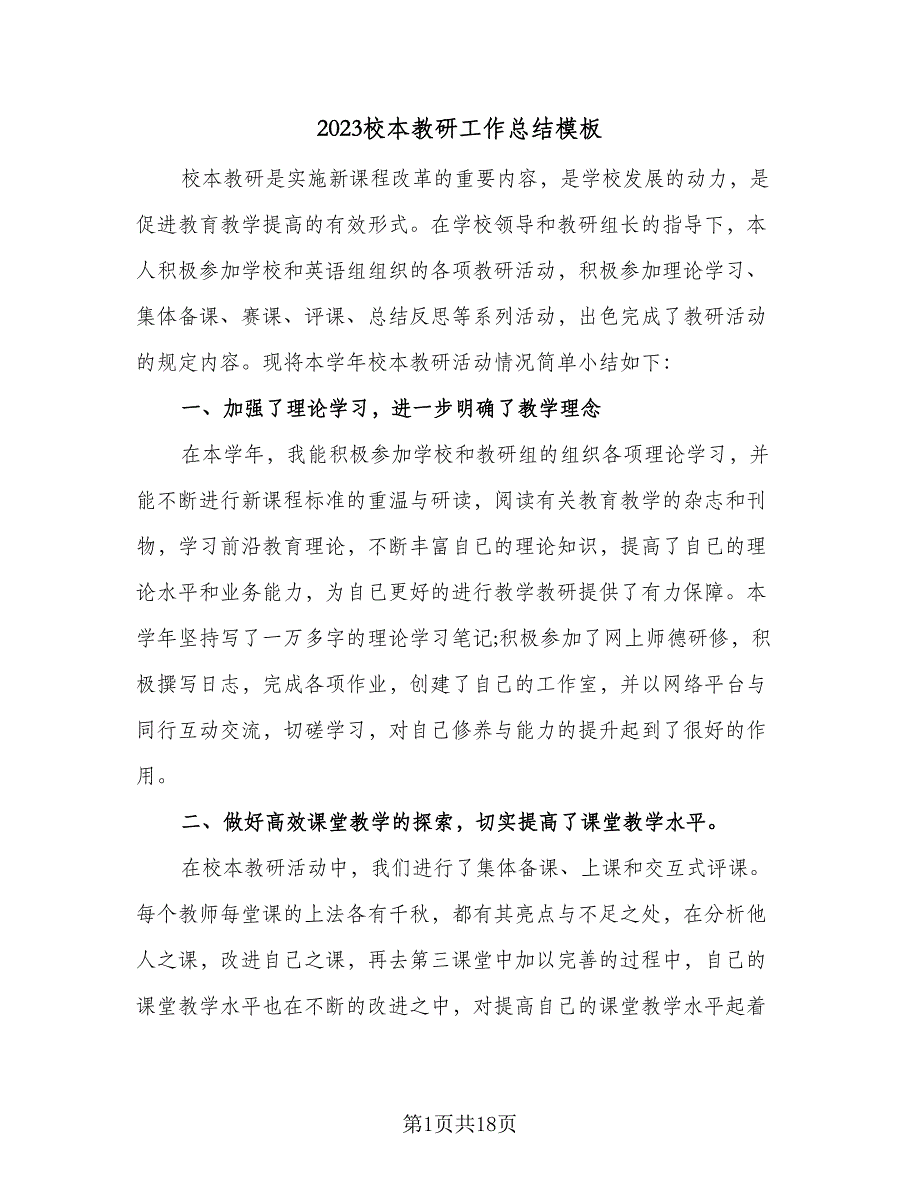 2023校本教研工作总结模板
校本教研是实施新课程改革的重要内容，是学校发展的动力，是
促进教育教学提高的有效形式。在学校领导和教研组长的指导下，本
人积极参加学校和英语组组织的各项教研活动，积极参加理论学习、
集体备课、赛课、评课、总结反思等系列活动，出色完成了教研活动
的规定内容。现将本学年校本教研活动情况简单小结如下：
一、加强了理论学习，进一步明确了教学理念
在本学年，我能积极参加学校和教研组的组织各项理论学习，并
能不断进行新课程标准的重温与研读，阅读有关教育教学的杂志和刊
物，学习前沿教育理论，不断丰富自己的理论知识，提高了自己的理
论水平和业务能力，为自己更好的进行教学教研提供了有力保障。本
学年坚持写了一万多字的理论学习笔记;积极参加了网上师德研修，积
极撰写日志，完成各项作业，创建了自己的工作室，并以网络平台与
同行互动交流，切磋学习，对自己修养与能力的提升起到了很好的作
用。
二、做好高效课堂教学的探索，切实提高了课堂教学水平。
在校本教研活动中，我们进行了集体备课、上课和交互式评课。
每个教师每堂课的上法各有千秋，都有其亮点与不足之处，在分析他
人之课，改进自己之课，再去第三课堂中加以完善的过程中，自己的
课堂教学水平也在不断的改进之中，对提高自己的课堂教学水平起着
第1页共18页